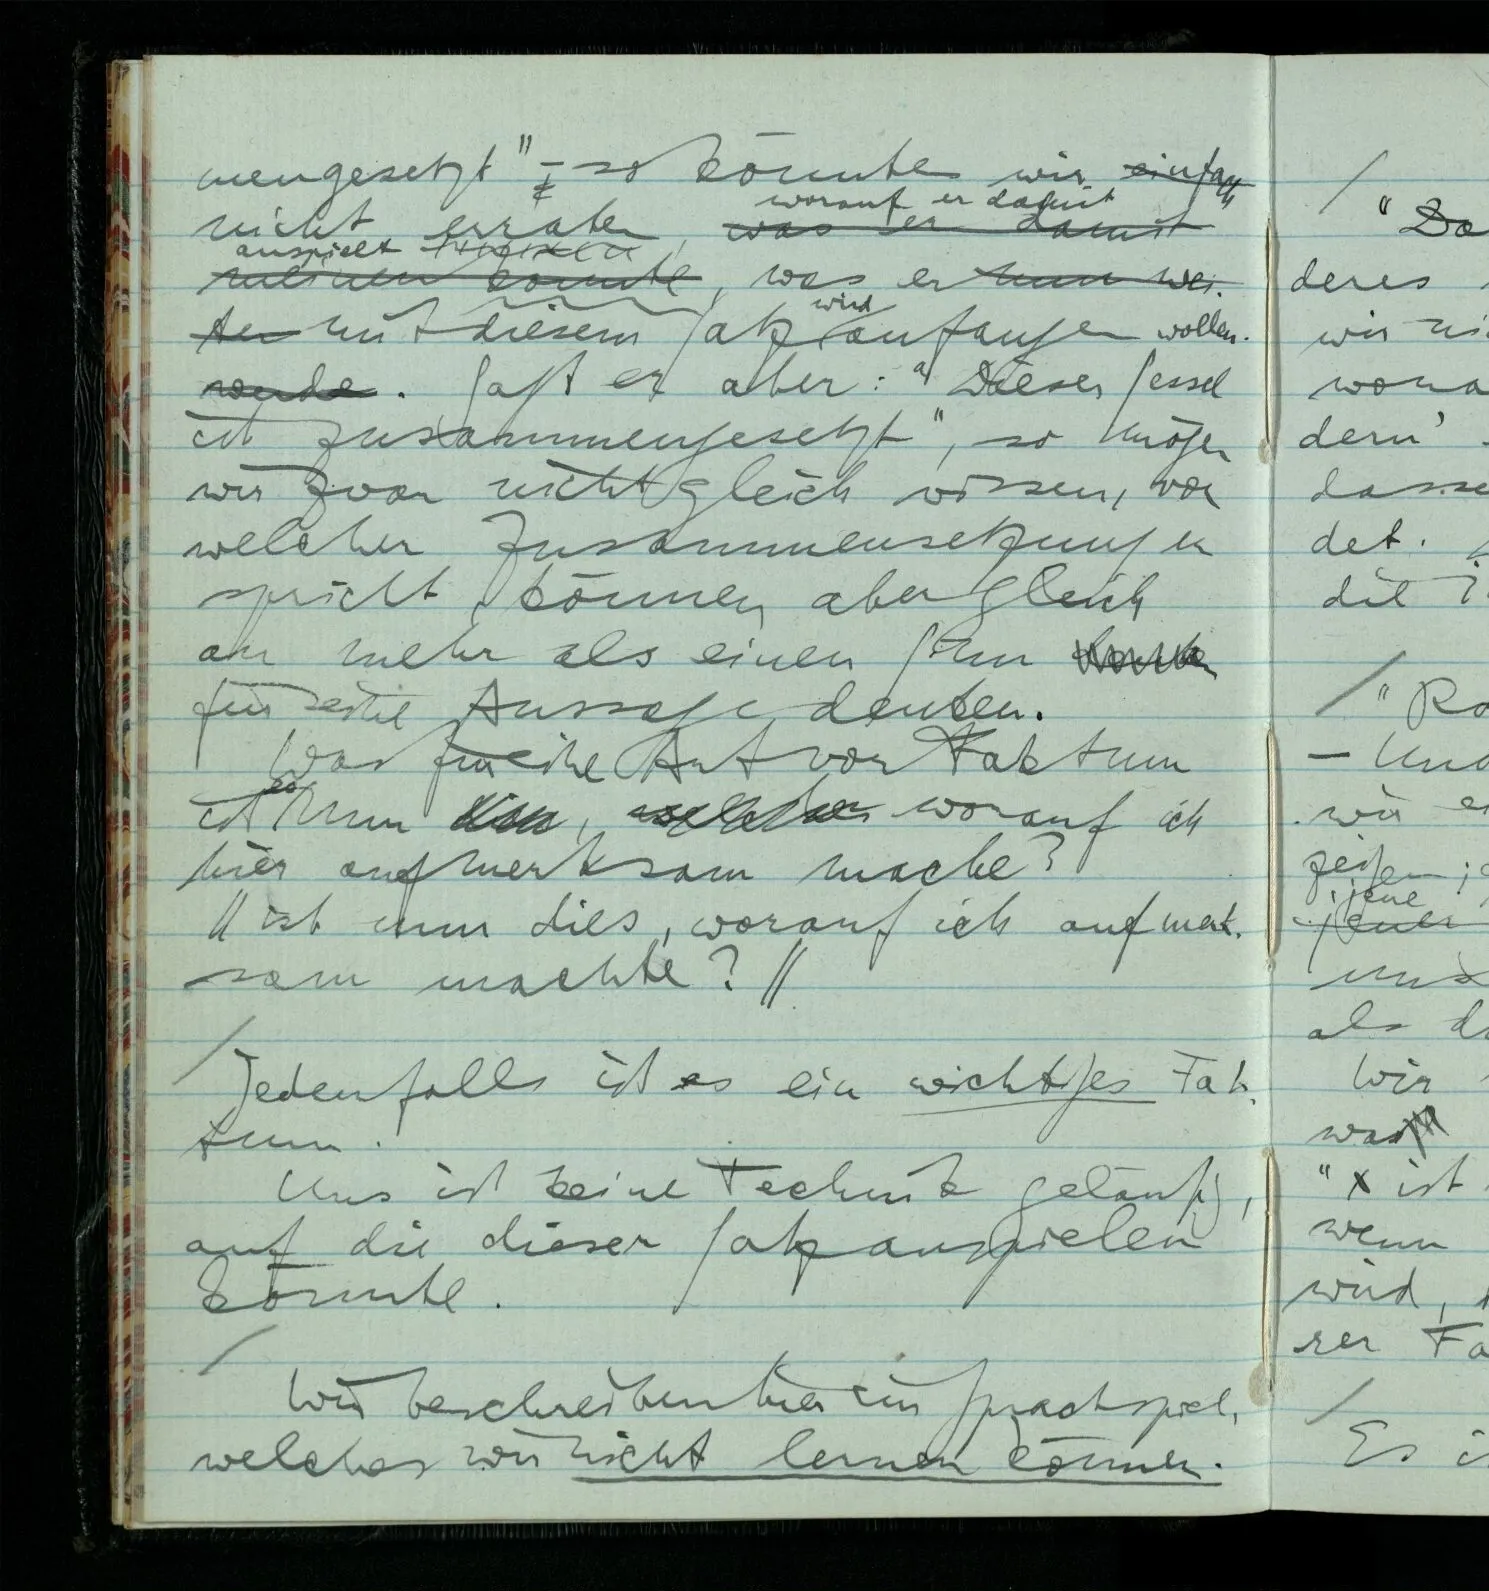 mengesetzt" – so könnten wir einfach
nicht erraten, was er damit
worauf er damit
anspielt
meinen könnte, was er nun wei-
ter mit diesem Satz anfangen wollen.
wird
werde. Sagt er aber: "Dieser Sessel
ist zusammengesetzt", so mögen
wir zwar nicht gleich wissen, von
welcher Zusammensetzung er
spricht, können aber gleich
an mehr als einen Sinn
für seine Aussage denken.
Was für eine Art von Faktum
ist es nun, worauf ich
hier aufmerksam mache?
// ist nun dies, worauf ich aufmerk-
sam machte? //
/
Jedenfalls ist es ein wichtiges Fak-
tum.
Uns ist keine Technik geläufig,
auf die dieser Satz anspielen
könnte.
/
Wir beschreiben hier ein Sprachspiel,
welches wir nicht lernen können.
/
"Da
deres
wir
dern'
dasse
det.
die
/
"Ro
– Und
wir
zeigen;
jene
jener
uns
als
Wir
was
"x ist
wenn
wird,
rer Fa
/
Es i